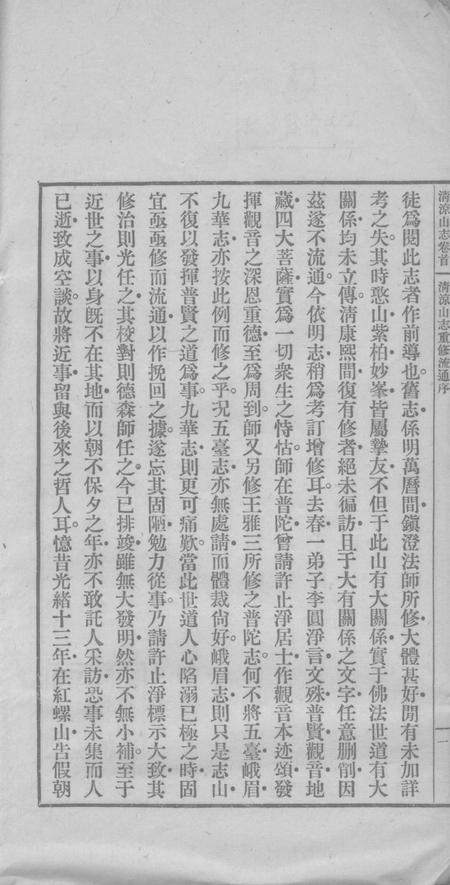 清涼山志卷首 清涼山志重修流通序 一
徒爲閱此志者作前導也。舊志係明萬曆間鎮澄法師所修大體甚好間有未加詳
考之失其時憨山紫柏妙峯皆屬摯友不但于此山有大關係實于佛法世道有大
關係均未立傳清康熙間復有修者絕未徧訪且于大有關係之文字任意刪削因
茲遂不流通今依明志稍爲考訂增修耳去春一弟子李圓淨言文殊普賢觀音地
藏四大菩薩實爲一切衆生之恃怙師在普陀曾請許止淨居士作觀音本迹頌發
揮觀音之深恩重德至爲周到師又另修王雅三所修之普陀志何不將五臺峨眉
九華志亦按此例而修之乎況五臺志亦無處請而體裁尙好峨眉志則只是志山
不復以發揮普賢之道爲事九華志則更可痛歎當此世道人心陷溺已極之時固
宜亟亟修而流通以作挽回之據遂忘其固陋勉力從事乃請許止淨標示大致其
修治則光任之其校對則德森師任之今已排竣雖無大發明然亦不無小補至于
近世之事以身旣不在其地而以朝不保夕之年亦不敢託人采訪恐事未集而人
已逝致成空談故將近事留與後來之哲人耳。憶昔光緒十三年在紅螺山告假朝